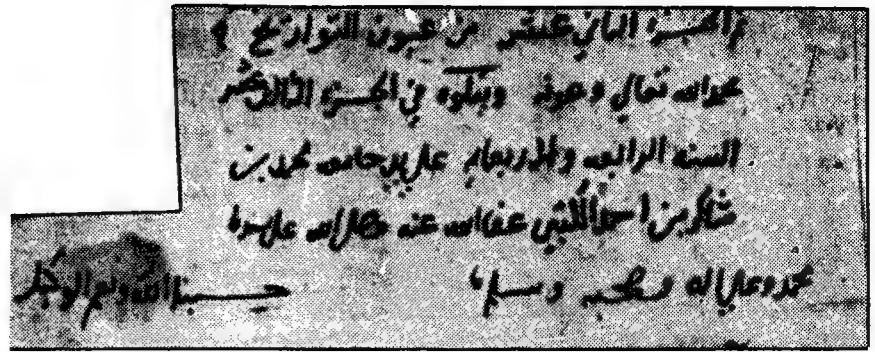 تم الجزء الثاني عشر من عيون التواريخ
بحمد الله تعالى وعونه ويتلوه في الجزء الثالث عشر
السنة الرابعة والاربعمايه على يد جامعه محمد بن
شاكر بن احمد الكتبي عفا الله عنه وصلى الله على سيدنا
محمد وعلى اله وصحبه وسلم حسبنا الله ونعم الوكيل